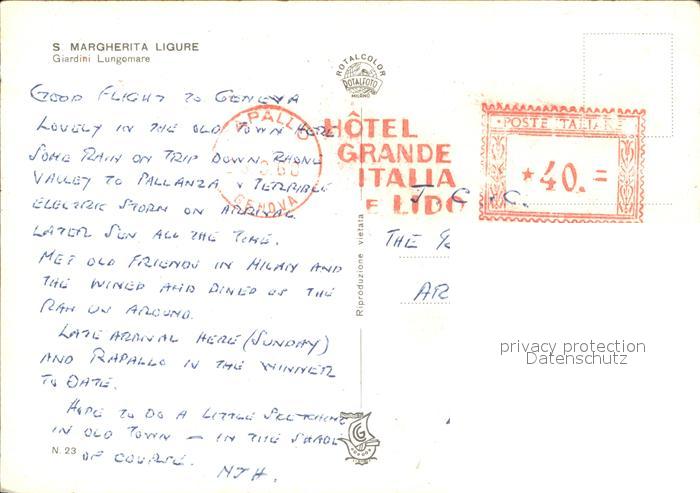 S. MARGHERITA LIGURE
Giardini Lungomare
GOOD FLIGHT TO GENEVA
LOVELY IN THE OLD TOWN HERE
SOME RAIN ON TRIP DOWN RHONE
VALLEY TO PALLANZA & TERRIBLE
ELECTRIC STORM ON ARRIVAL
LATER SUN ALL THE TIME.
MET OLD FRIENDS IN MILAN AND
THE WINED AND DINED US THE
RAN US AROUND.
LATE ARRIVAL HERE (SUNDAY)
AND RAPALLO IN THE WINNER
TO DATE.
HOPE TO DO A LITTLE SKETCHING
IN OLD TOWN — IN THE SHADE
OF COURSE. MJH.
N. 23
ROTALCOLOR
ROTALFOTO
MILANO
Riproduzione vietata
RAPALLO
GENOVA
HÔTEL
GRANDE
ITALIA
E LIDO
POSTE ITALIANE
★ 40. =
J. C. C.
THE
AR
privacy protection
Datenschutz